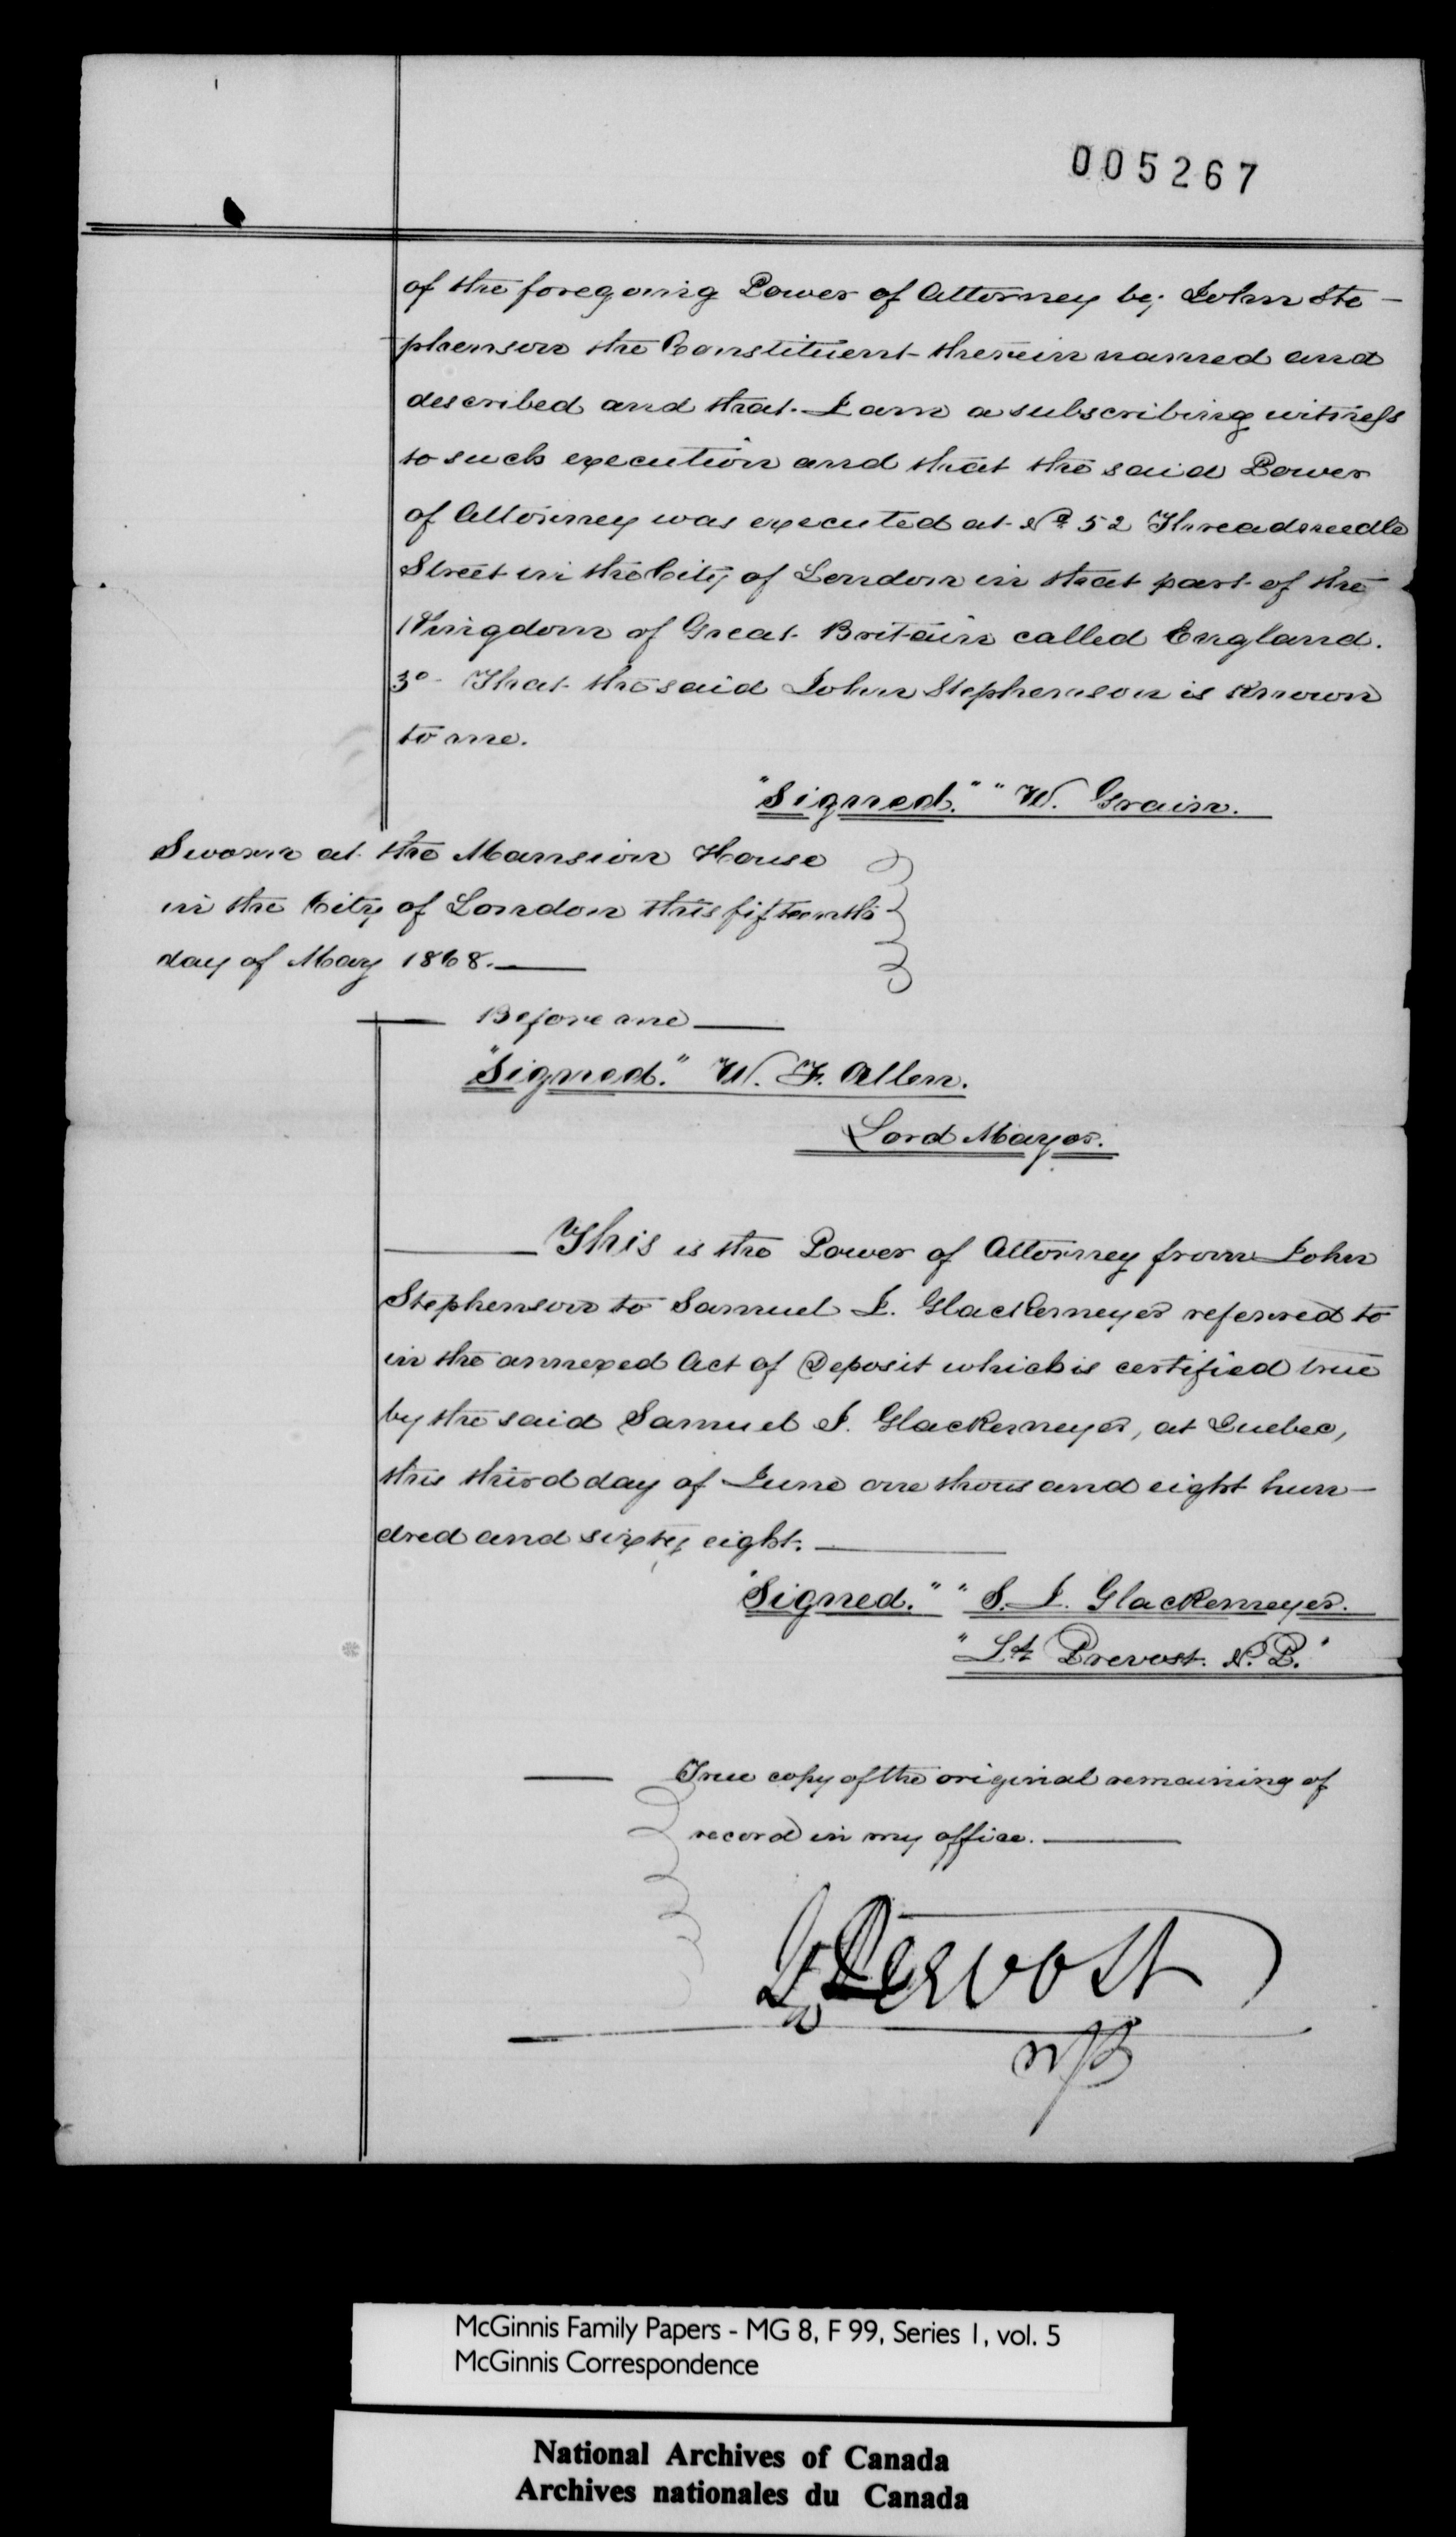 005267
of the foregoing Power of Attorney by John Ste-
phenson the Constituent therein named and
described and that I am a subscribing witness
to such execution and that the said Power
of Attorney was executed at No. 52 Threadneedle
Street in the City of London in that part of the
Kingdom of Great Britain called England.
3o- That the said John Stephenson is known
to me.
"Signed." "W. Grain.
Sworn at the Mansion House
in the City of London this fifteenth
day of May 1868.
Before me
"Signed." W. F. Allen.
Lord Mayor.
This is the Power of Attorney from John
Stephenson to Samuel I. Glackemeyer referred to
in the annexed Act of Deposit which is certified true
by the said Samuel I. Glackemeyer, at Quebec,
this third day of June one thousand eight hun-
dred and sixty eight.
"Signed." "S. I. Glackemeyer.
"Lt Prevost. N. P."
True copy of the original remaining of
record in my office.
Lt Prevost
NP
McGinnis Family Papers - MG 8, F 99, Series 1, vol. 5
McGinnis Correspondence
National Archives of Canada
Archives nationales du Canada